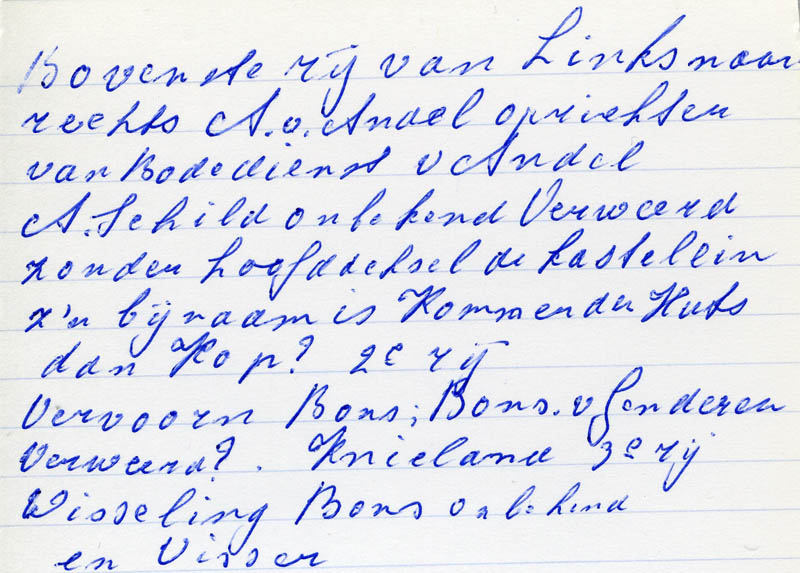 Bovenste rij van Links naar
rechts A.v. Andel oprichter
van Bodedienst v Andel
A. Schild onbekend Verweerd
zonder hoofddeksel de kastelein
z'n bijnaam is Kommender Huts
dan Kop? 2e rij
Vervoorn Bons; Bons. v Genderen
Verweerd?. Knieland 3e rij
Wisseling Bons onbekend
en Visser